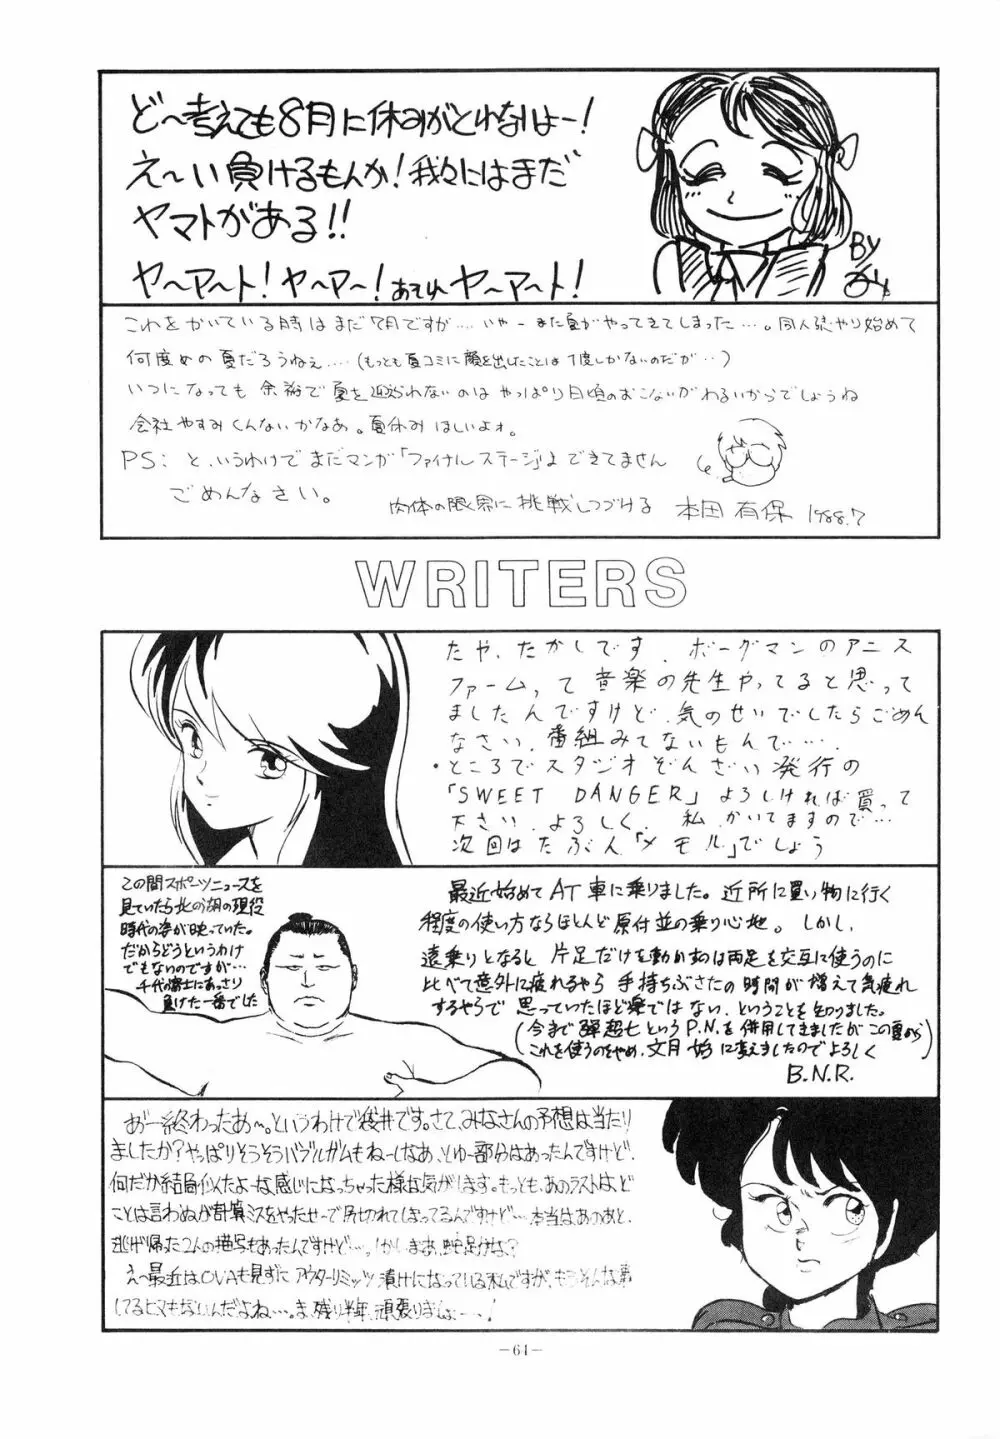 ど〜考えても8月に休みがとれないよー!
え〜い負けるもんか!我々にはまだ
ヤマトがある!!
ヤ〜ア〜ト!ヤ〜ア〜!あそれヤ〜ア〜ト!
BY
これをかいている時はまだ7月ですが……いやーまた夏がやってきてしまった…。同人誌やり始めて
何度めの夏だろうねぇ……(もっとも夏コミに顔を出したことは1度しかないのだが…)
いつになっても余裕で夏を迎えられないのはやっぱり日頃のおこないがわるいからでしょうね
会社やすみくんないかなあ。夏休みほしいよォ。
PS:と、いうわけでまだマンガ「ファイナルステージ」はできてません
ごめんなさい。
肉体の限界に挑戦しつづける 本田 有保 1988.7
WRITERS
たや、たかしです、ボーグマンのアニス
ファームって音楽の先生やってると思って
ましたんですけど、気のせいでしたらごめん
なさい、番組みてないもんで……
・ところでスタジオぞんざい発行の
「SWEET DANGER」よろしければ買って
下さい、よろしく、私、かいてますので…
次回はたぶん「メモル」でしょう
この間スポーツニュースを
見ていたら北の湖の現役
時代の姿が映っていた。
だからどうというわけ
でもないのですが…
千代の富士にあっさり
負けた一番でした
最近始めてAT車に乗りました。近所に買い物に行く
程度の使い方ならほとんど原付並の乗り心地。しかし、
遠乗りとなると片足だけを動かすのは両足を交互に使うのに
比べて意外に疲れるやら手持ちぶさたの時間が増えて気疲れ
するやらで思っていたほど楽ではない、ということを知りました。
(今まで弾超七というP.N.を併用してきましたがこの夏から
これを使うのをやめ、文月始に変えましたのでよろしく)
B.N.R.
あー終わったあ〜。というわけで袋井です。さて、みなさんの予想は当たり
ましたか?やっぱりそうそうバブルガムもねーしなあ、とゆー部分はあったんですけど、
何だか結局似たよーな感じになっちゃった様な気がします。もっとも、あのラストは、ど
ことは言わぬが計算ミスをやったせーで尻切れてしまってるんですけど…本当は、あのあと、
逃げ帰った2人の描写もあったんですけど…。しかしまあ、蛇足かな?
え〜最近はOVAも見ずにアウターリミッツ漬けになっている私ですが、もうそんな事
してるヒマもないんだよね…ま、残り半年、頑張りましょ——!
—64—